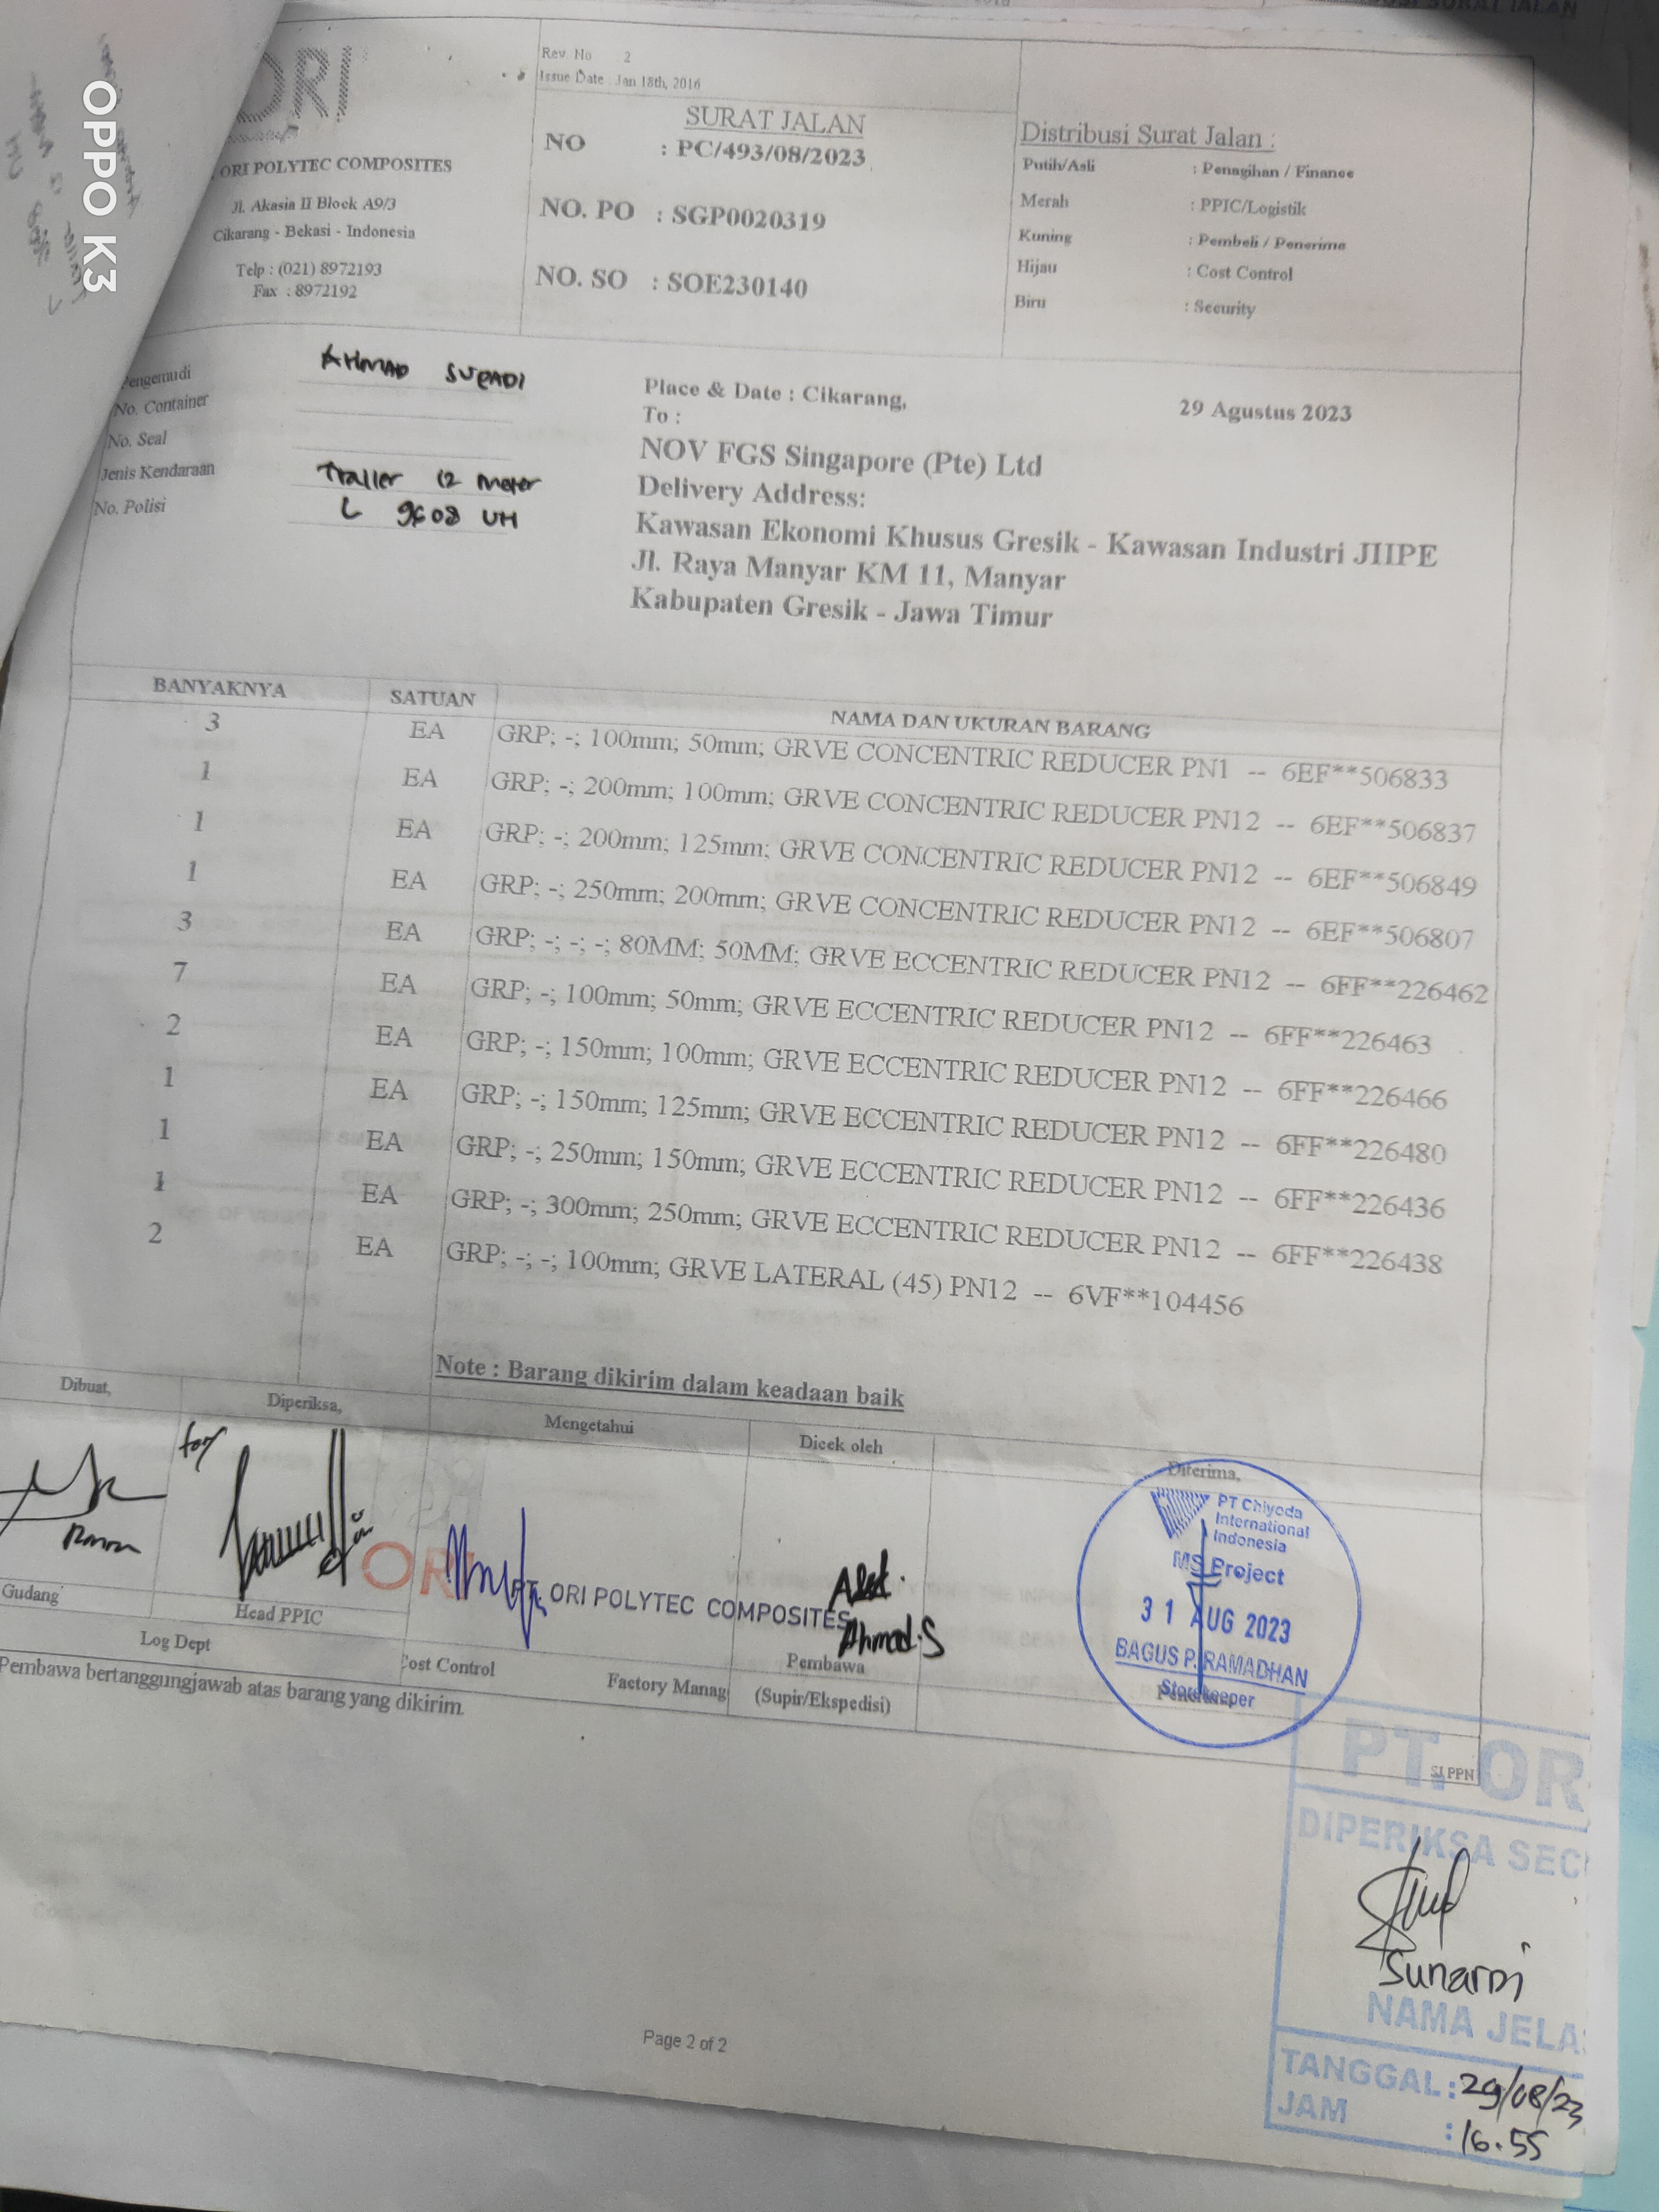 OPPO K3
ORI
ORI POLYTEC COMPOSITES
Jl. Akasia II Block A9/3
Cikarang - Bekasi - Indonesia
Telp : (021) 8972193
Fax : 8972192
Rev. No 2
Issue Date : Jan 18th, 2016
SURAT JALAN
NO : PC/493/08/2023
NO. PO : SGP0020319
NO. SO : SOE230140
Distribusi Surat Jalan :
Putih/Asli : Penagihan / Finance
Merah : PPIC/Logistik
Kuning : Pembeli / Penerima
Hijau : Cost Control
Biru : Security
Pengemudi AHMAD SUPADI
No. Container
No. Seal
Jenis Kendaraan Trailer 12 meter
No. Polisi L 9608 UH
Place & Date : Cikarang, 29 Agustus 2023
To :
NOV FGS Singapore (Pte) Ltd
Delivery Address:
Kawasan Ekonomi Khusus Gresik - Kawasan Industri JIIPE
Jl. Raya Manyar KM 11, Manyar
Kabupaten Gresik - Jawa Timur
BANYAKNYA SATUAN NAMA DAN UKURAN BARANG
3 EA GRP; -; 100mm; 50mm; GRVE CONCENTRIC REDUCER PN1 -- 6EF**506833
1 EA GRP; -; 200mm; 100mm; GRVE CONCENTRIC REDUCER PN12 -- 6EF**506837
1 EA GRP; -; 200mm; 125mm; GRVE CONCENTRIC REDUCER PN12 -- 6EF**506849
1 EA GRP; -; 250mm; 200mm; GRVE CONCENTRIC REDUCER PN12 -- 6EF**506807
3 EA GRP; -; -; -; 80MM; 50MM; GRVE ECCENTRIC REDUCER PN12 -- 6FF**226462
7 EA GRP; -; 100mm; 50mm; GRVE ECCENTRIC REDUCER PN12 -- 6FF**226463
2 EA GRP; -; 150mm; 100mm; GRVE ECCENTRIC REDUCER PN12 -- 6FF**226466
1 EA GRP; -; 150mm; 125mm; GRVE ECCENTRIC REDUCER PN12 -- 6FF**226480
1 EA GRP; -; 250mm; 150mm; GRVE ECCENTRIC REDUCER PN12 -- 6FF**226436
1 EA GRP; -; 300mm; 250mm; GRVE ECCENTRIC REDUCER PN12 -- 6FF**226438
2 EA GRP; -; -; 100mm; GRVE LATERAL (45) PN12 -- 6VF**104456
Note : Barang dikirim dalam keadaan baik
Dibuat, Diperiksa, Mengetahui Dicek oleh Diterima,
for
ORI
PT. ORI POLYTEC COMPOSITES
Ahmad.S
PT Chiyoda
International
Indonesia
MS Project
31 AUG 2023
BAGUS P. RAMADHAN
Storekeeper
Gudang Head PPIC
Log Dept Cost Control Factory Manag Pembawa
(Supir/Ekspedisi)
Pembawa bertanggungjawab atas barang yang dikirim.
SJ PPN
PT. OR
DIPERIKSA SEC
Sunardi
NAMA JELA
TANGGAL : 29/08/23
JAM : 16.55
Page 2 of 2